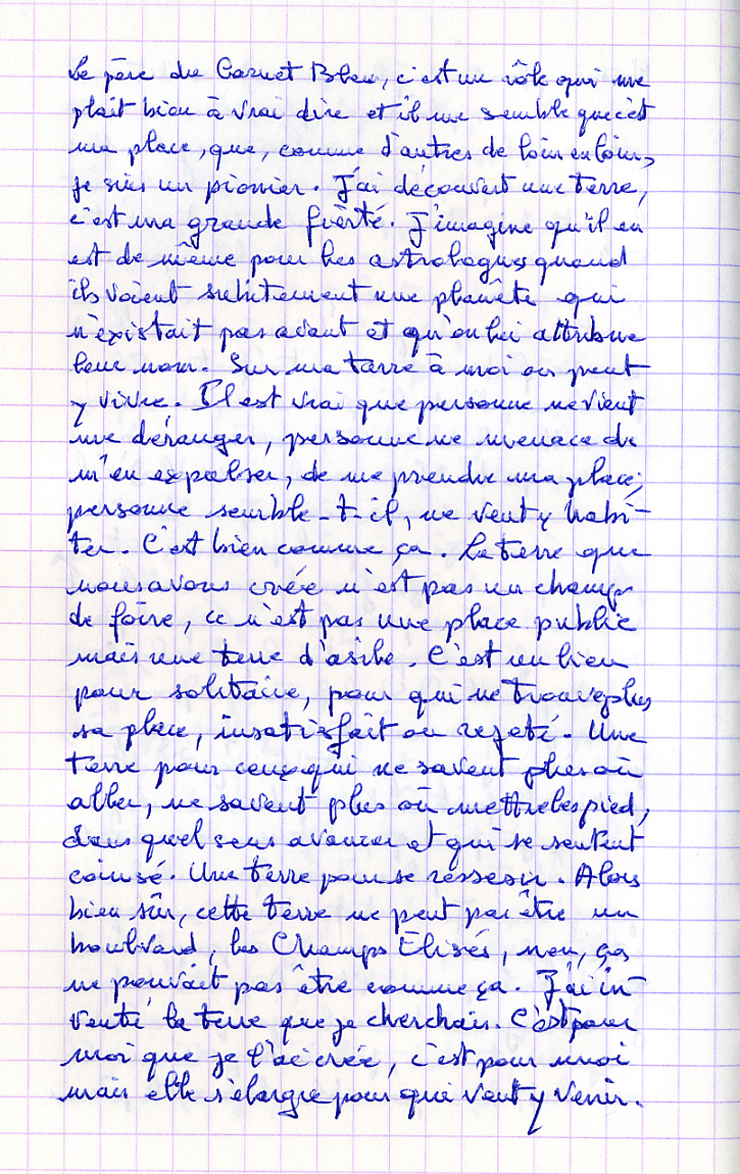 Le père du Carnet Bleu, c'est un rôle qui me
plait bien à vrai dire et il me semble que c'est
ma place, que, comme d'autres de loin en loin,
je suis un pionier. J'ai découvert une terre,
c'est ma grande fièrté. J'imagine qu'il en
est de même pour les astrologues quand
ils voient subitement une planète qui
n'existait pas avant et qu'on lui attribue
leur nom. Sur ma terre à moi on peut
y vivre. Il est vrai que personne ne vient
me déranger, personne ne menace de
m'en expulser, de me prendre ma place,
personne semble-t-il, ne veut y habi-
ter. C'est bien comme ça. La terre que
nous avons créée n'est pas un champs
de foire, ce n'est pas une place public
mais une terre d'asile. C'est un lieu
pour solitaire, pour qui ne trouve plus
sa place, insatisfait ou rejeté. Une
terre pour ceux qui ne savent plus où
aller, ne savent plus où mettre les pied,
dans quel sens avancer et qui se sentent
coinsé. Une terre pour se
bien sûr, cette terre ne peut pas être un
boulvard, les Champs Élisés, non, ça
ne pouvait pas être comme ça. J'ai in-
venté la terre que je cherchais. C'est pour
moi que je l'ai créé, c'est pour moi
mais elle s'élargie pour qui veut y venir.